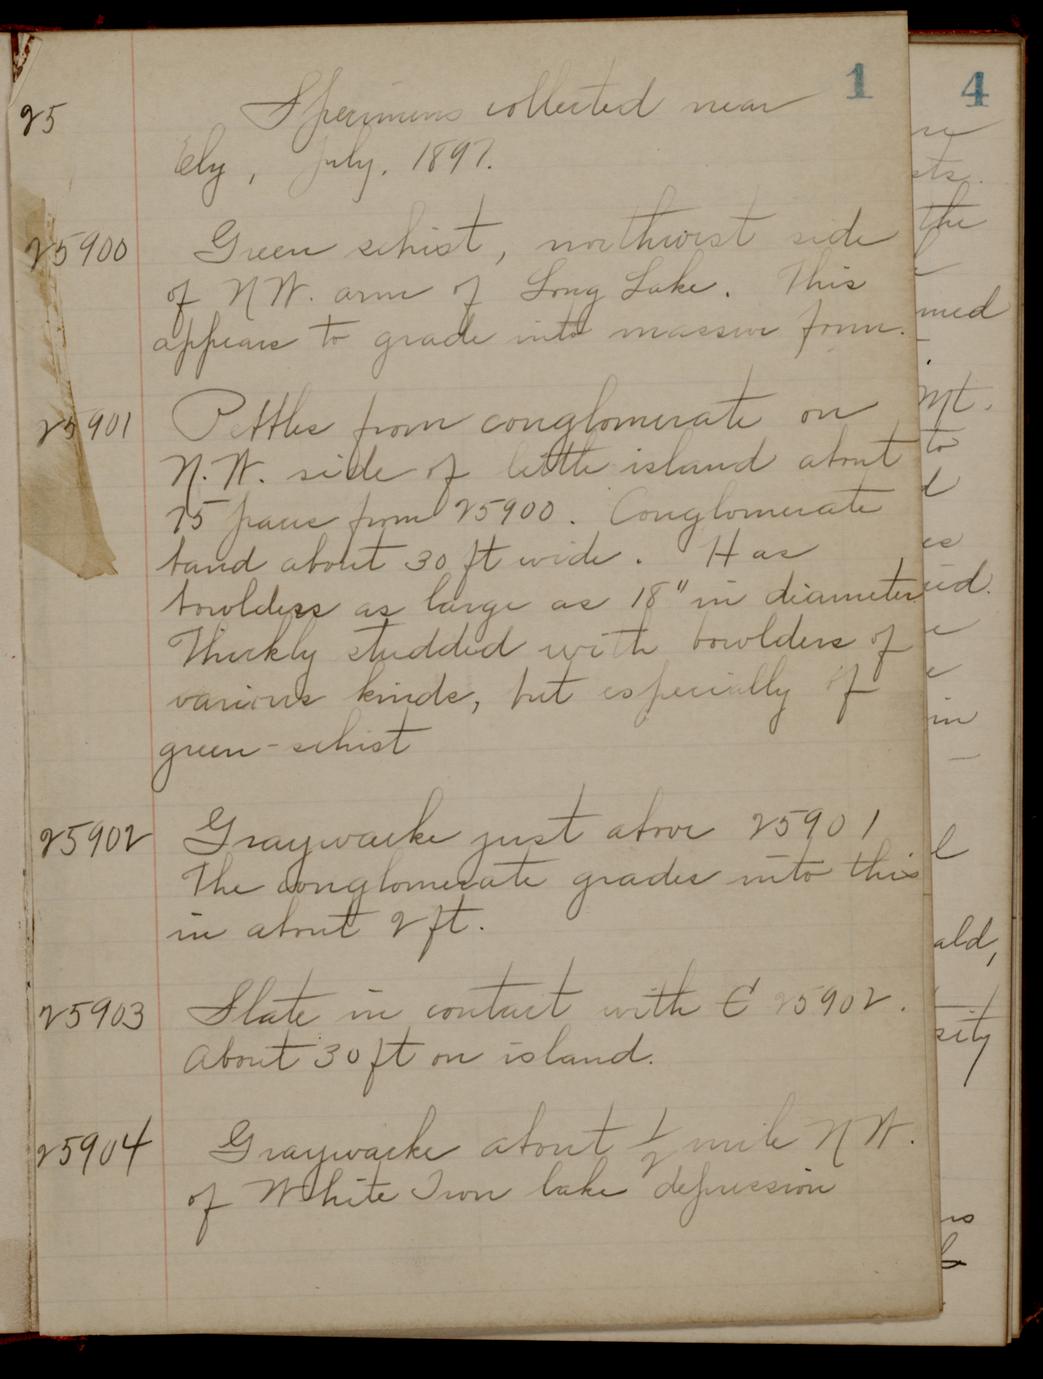 1
4
25 Specimens collected near
Ely, July, 1897.
25900 Green schist, northwest side
of N.W. arm of Long Lake. This
appears to grade into massive form.
25901 Pebbles from conglomerate on
N.W. side of little island about
75 paces from 25900. Conglomerate
band about 30 ft wide. Has
bowlders as large as 18" in diameter
Thickly studded with bowlders of
various kinds, but especially of
green-schist
25902 Graywacke just above 25901
The conglomerate grades into this
in about 2 ft.
25903 Slate in contact with 25902.
About 30 ft on island.
25904 Graywacke about 1/2 mile N.W.
of White Iron lake depression
the
Mt.
to
in
ald,
sity